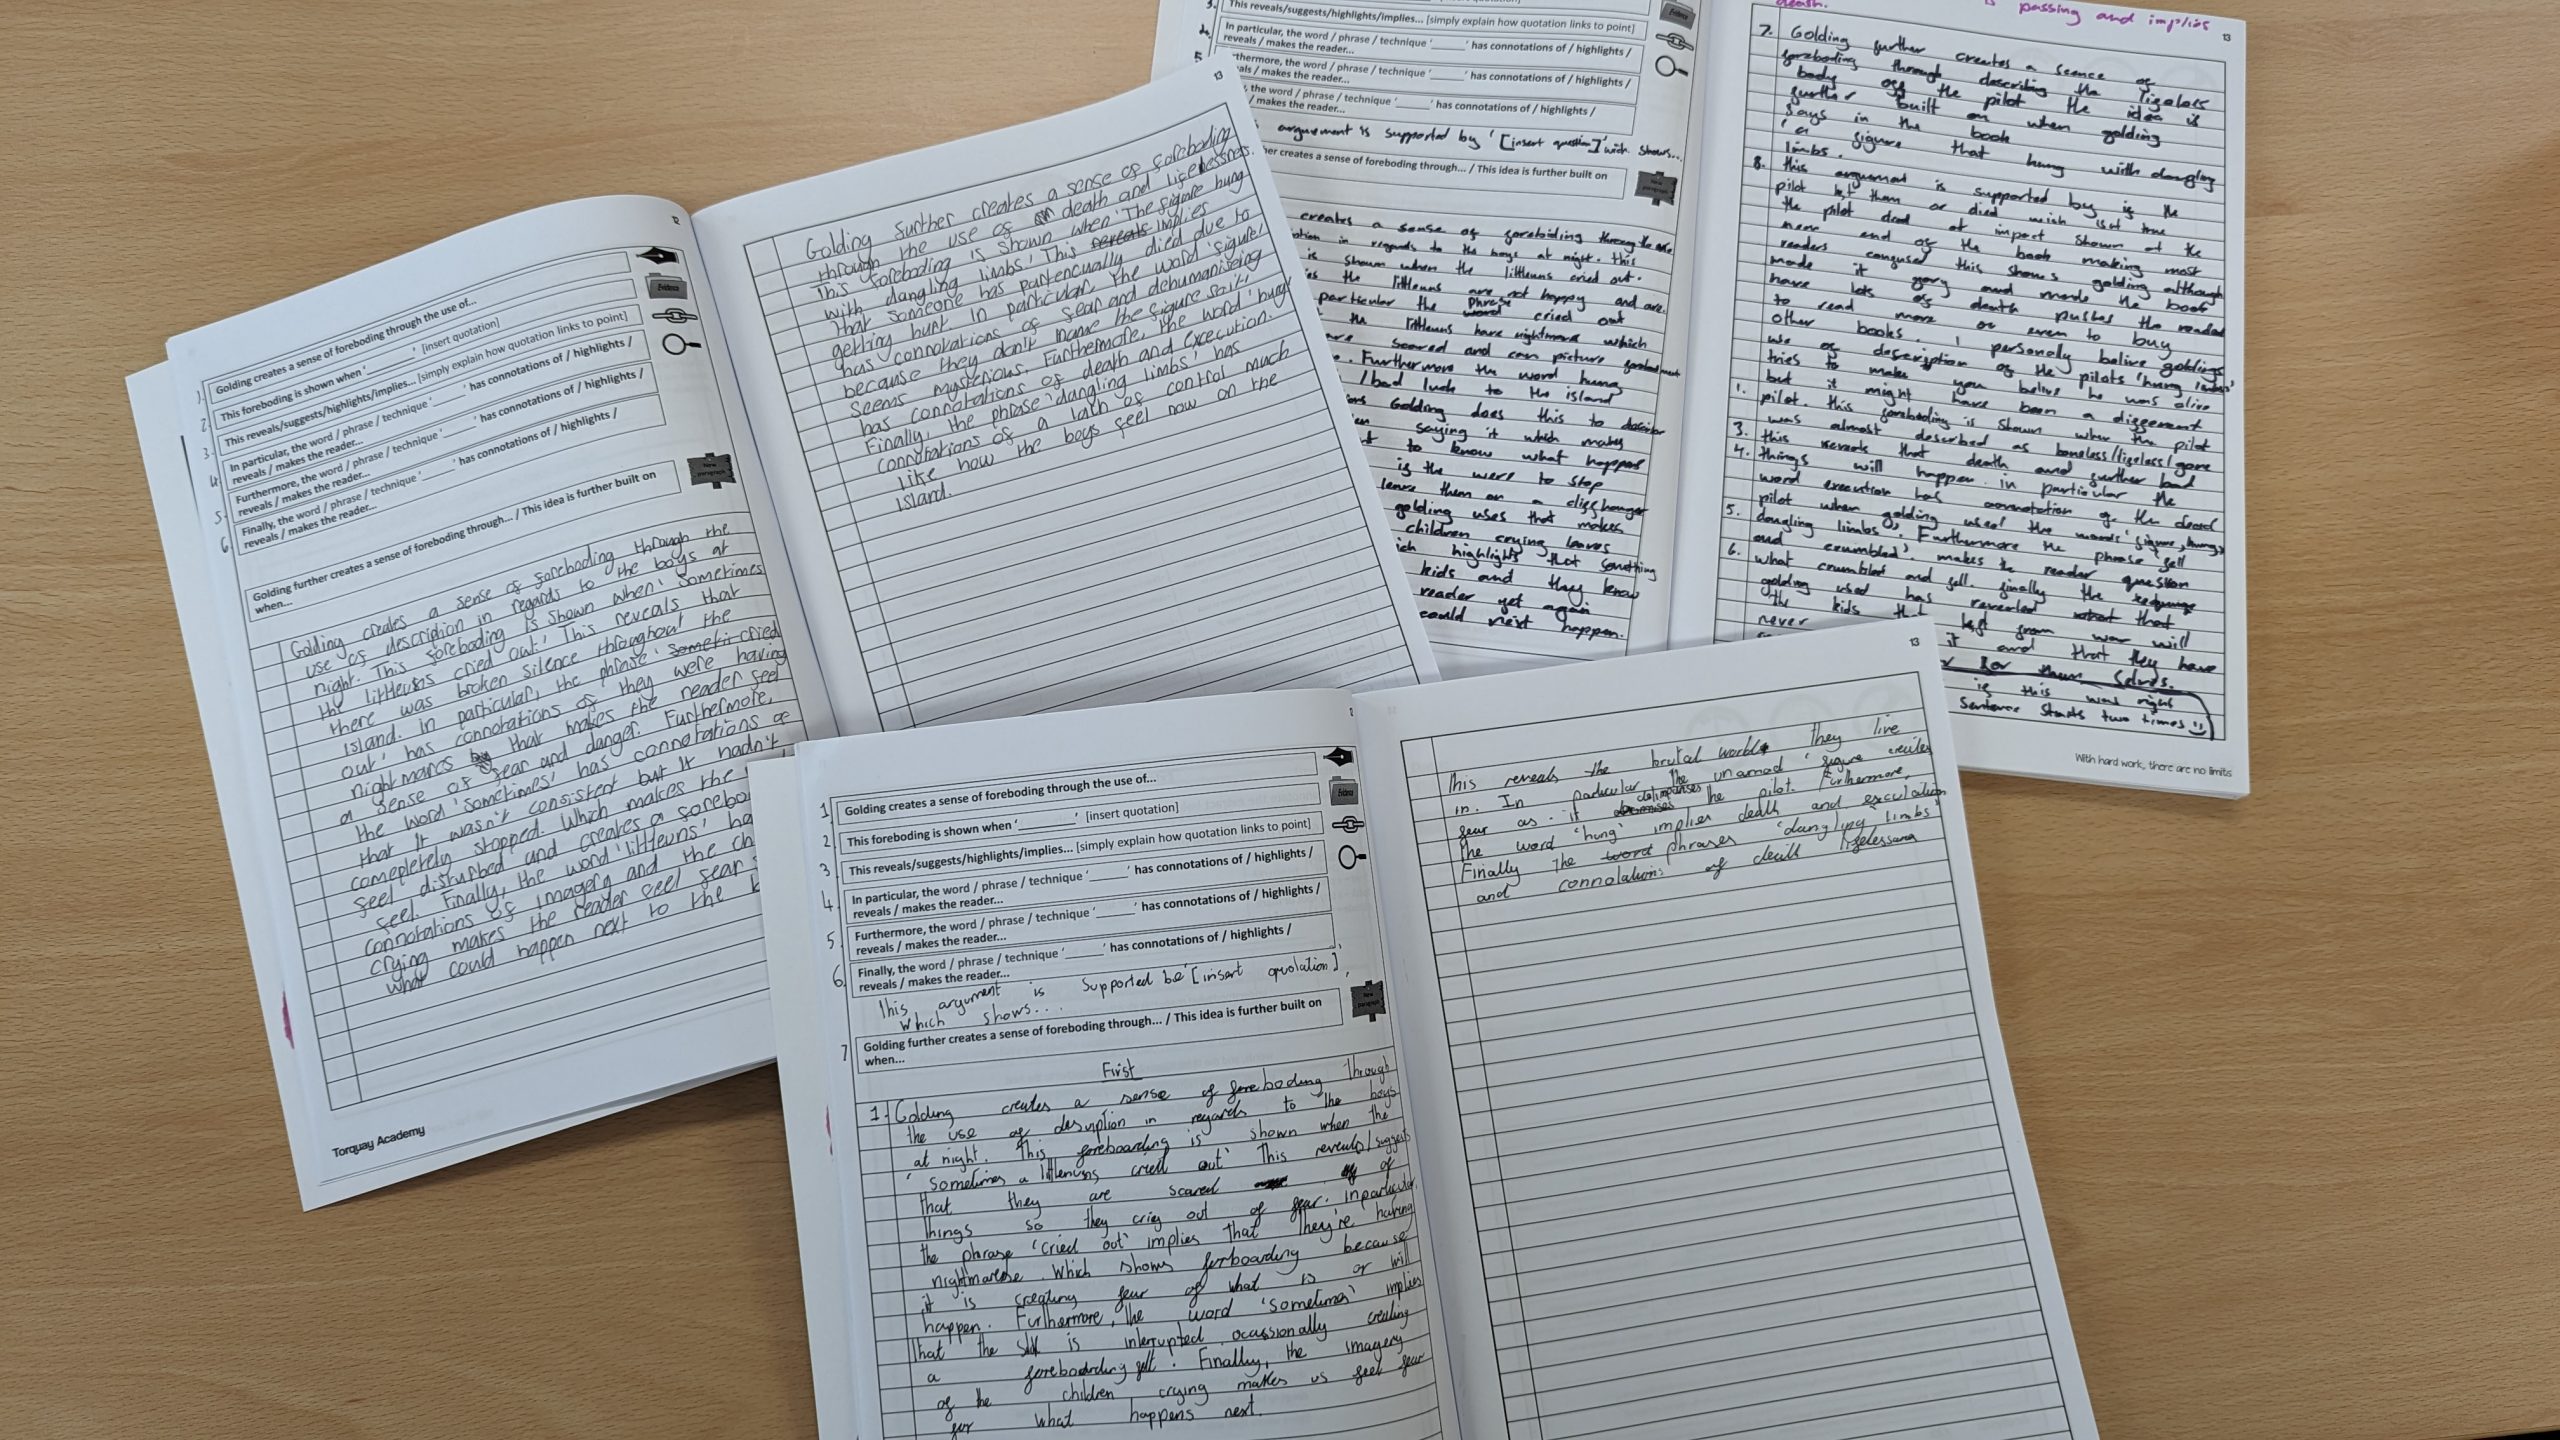 12
1.
Golding creates a sense of foreboding through the use of...
2
This foreboding is shown when '________' [insert quotation]
Evidence
3.
This reveals/suggests/highlights/implies... [simply explain how quotation links to point]
4
In particular, the word / phrase / technique '______' has connotations of / highlights /
reveals / makes the reader...
5.
Furthermore, the word / phrase / technique '______' has connotations of / highlights /
reveals / makes the reader...
6
Finally, the word / phrase / technique '______' has connotations of / highlights /
reveals / makes the reader...
New
paragraph
Golding further creates a sense of foreboding through... / This idea is further built on
when...
Golding creates a sense of foreboding through the
use of description in regards to the boys at
night. This foreboding is shown when 'sometimes
the littleuns cried out.' This reveals that
there was broken silence throughout the
island. In particular, the phrase 'cried
out' has connotations of they were having
nightmares that makes the reader feel
a sense of fear and danger. Furthermore,
the word 'sometimes' has connotations of
that it wasn't consistent but it hadn't
compleltely stopped. Which makes the
feel disturbed and creates a
feel. Finally, the word 'littleuns'
connotations of imagery and the
crying makes the reader feel fear
what could happen next to the
Torquay Academy
13
Golding further creates a sense of foreboding
through the use of death and lifelessness.
This foreboding is shown when 'The figure hung
with dangling limbs.' This reveals implies
that someone has died due to
getting hurt. In particular, the word 'figure'
has connotations of fear and dehumanising
because they don't name the figure so it
seems mysterious. Furthermore, the word 'hung'
has connotations of death and execution.
Finally, the phrase 'dangling limbs' has
connotations of a lack of control much
like how the boys feel now on the
island.
3.
This reveals/suggests/highlights/implies... [simply explain how quotation links to point]
4.
In particular, the word / phrase / technique '______' has connotations of / highlights /
reveals / makes the reader...
5
thermore, the word / phrase / technique '______' has connotations of / highlights /
/ makes the reader...
the word / phrase / technique '______' has connotations of / highlights /
/ makes the reader...
arguement is supported by '[insert ]' with shows...
her creates a sense of foreboding through... / This idea is further built on
New
paragraph
creates a sense of foreboding through the use
in regards to the boys at night. this
is shown when the littleuns cried out.
the littleuns are not happy and are
particular the phrase word cried out
the littleuns have nightmares which
scared and can picture
Furthermore the word hung
/bad luck to the island
Golding does this to
saying it which makes
to know what happens
is the were to stop
leave them on a cliffhanger
golding uses that makes
children crying leaves
highlights that something
kids and they know
reader yet again
could next happen.
death. is passing and implies
13
7. Golding further creates a scence of
foreboding through describing the lifeless
body off the pilot the idea is
further built on when golding
says in the book
'a figure that hung with dangling
limbs.'
8. this argument is supported by is the
pilot or died wich isnt true
the pilot died at impact shown at the
mere end of the book making most
readers confused this shows golding although
made it gory and made the book
have lots of death pushes the reader
to read more or even to buy
other books. I personaly belive goldings
use of description of the pilots 'hung limbs'
tries to make you belive he was alive
but it might have been a different
1. pilot. this foreboding is shown when the pilot
was almost described as boneless/lifeless/gone
3. this reveals that death and further bad
4. things will happen. in particular the
word execution has connotation of the dead
pilot when golding used the words 'figure, hung,
5. dangling limbs'. Furthermore the phrase fell
and crumbled'. makes the reader question
6. what crumbled and fell. finally the
golding used has revealed that
the kids that left from war will
never
it and that they have
for them selves.
if this was right
Sentence starts two times
With hard work, there are no limits
1
Golding creates a sense of foreboding through the use of...
2.
This foreboding is shown when '________' [insert quotation]
Evidence
3
This reveals/suggests/highlights/implies... [simply explain how quotation links to point]
4.
In particular, the word / phrase / technique '______' has connotations of / highlights /
reveals / makes the reader...
5
Furthermore, the word / phrase / technique '______' has connotations of / highlights /
reveals / makes the reader...
6
Finally, the word / phrase / technique '______' has connotations of / highlights /
reveals / makes the reader...
This argument is supported be '[insert quotation],
which shows...
New
paragraph
7
Golding further creates a sense of foreboding through... / This idea is further built on
when...
First
1. Golding creates a sense of foreboding through
the use of desription in regards to the boys
at night. This foreboarding is shown when the
'sometimes a littleniuns cried out' This reveals/suggests
that they are scared of
things so they criey out of fear. in particular,
the phrase 'cried out' implies that they're having
nightmarese. Which shows forboarding because
it is creating fear of what is or will
happen. Furthermore, the word 'sometimes' implies
that the is interrupted ocassionally creating
a foreboarding fell. Finally, the imagery
of the children crying makes us feel fear
for what happens next.
13
This reveals the brutal world they live
in. In particular the unamed 'figure' creates
fear as if the pilot. Furthermore,
the word 'hung' implies death and
Finally the word phrases 'dangling limbs'
and connotations of death